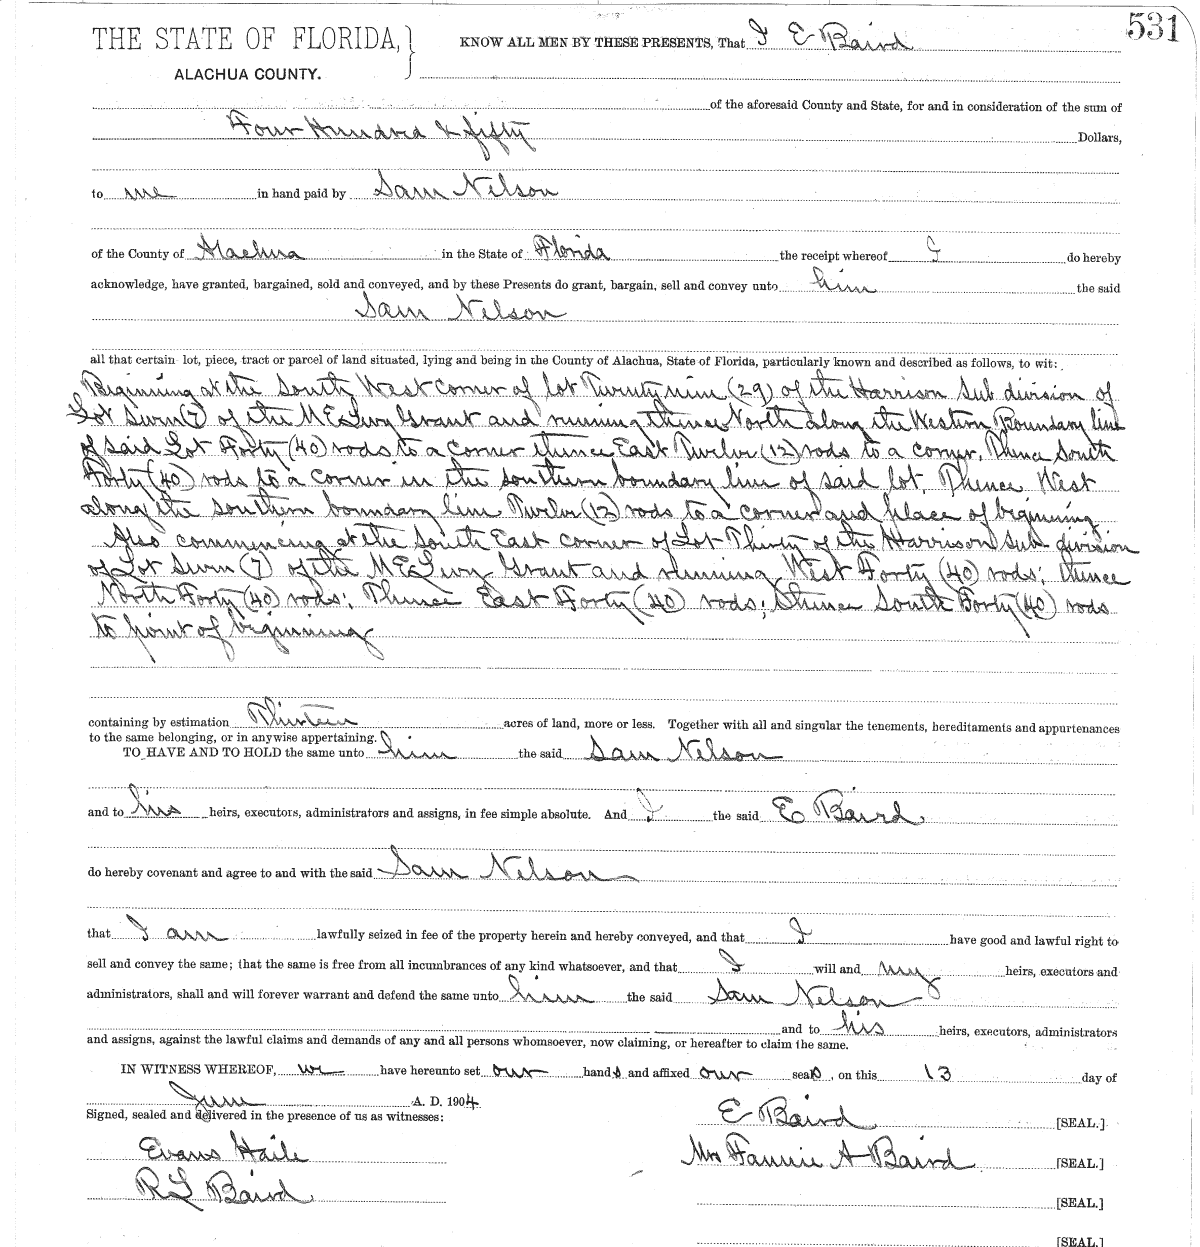 531
THE STATE OF FLORIDA,} KNOW ALL MEN BY THESE PRESENTS, That I E Baird
ALACHUA COUNTY.
of the aforesaid County and State, for and in consideration of the sum of
Four Hundred & fifty Dollars,
to me in hand paid by Sam Nelson
of the County of Alachua in the State of Florida the receipt whereof I do hereby
acknowledge, have granted, bargained, sold and conveyed, and by these Presents do grant, bargain, sell and convey unto him the said
Sam Nelson
all that certain lot, piece, tract or parcel of land situated, lying and being in the County of Alachua, State of Florida, particularly known and described as follows, to wit:
Beginning at the South West corner of lot Twenty nine (29) of the Harrison Sub division of
Lot Seven (7) of the McLevy Grant and running thence North along the Western Boundary line
of said Lot Forty (40) rods to a corner thence East Twelve (12) rods to a corner, Thence South
Forty (40) rods to a corner in the southern boundary line of said lot, Thence West
along the southern boundary line Twelve (12) rods to a corner and place of beginning
Also commencing at the South East corner of Lot Thirty of the Harrison Sub division
of Lot Seven (7) of the McLevy Grant and running West Forty (40) rods; thence
North Forty (40) rods; Thence East Forty (40) rods; Thence South Forty (40) rods
to point of beginning
containing by estimation Thirteen acres of land, more or less. Together with all and singular the tenements, hereditaments and appurtenances
to the same belonging, or in anywise appertaining.
TO HAVE AND TO HOLD the same unto him the said Sam Nelson
and to his heirs, executors, administrators and assigns, in fee simple absolute. And I the said E Baird
do hereby covenant and agree to and with the said Sam Nelson
that I am lawfully seized in fee of the property herein and hereby conveyed, and that I have good and lawful right to
sell and convey the same; that the same is free from all incumbrances of any kind whatsoever, and that I will and my heirs, executors and
administrators, shall and will forever warrant and defend the same unto him the said Sam Nelson
and to his heirs, executors, administrators
and assigns, against the lawful claims and demands of any and all persons whomsoever, now claiming, or hereafter to claim the same.
IN WITNESS WHEREOF, we have hereunto set our hands and affixed our seals, on this 13 day of
June A. D. 1904
Signed, sealed and delivered in the presence of us as witnesses:
E Baird [SEAL.]
Evans Haile
Mrs Fannie A Baird [SEAL.]
R L Baird
[SEAL.]
[SEAL.]